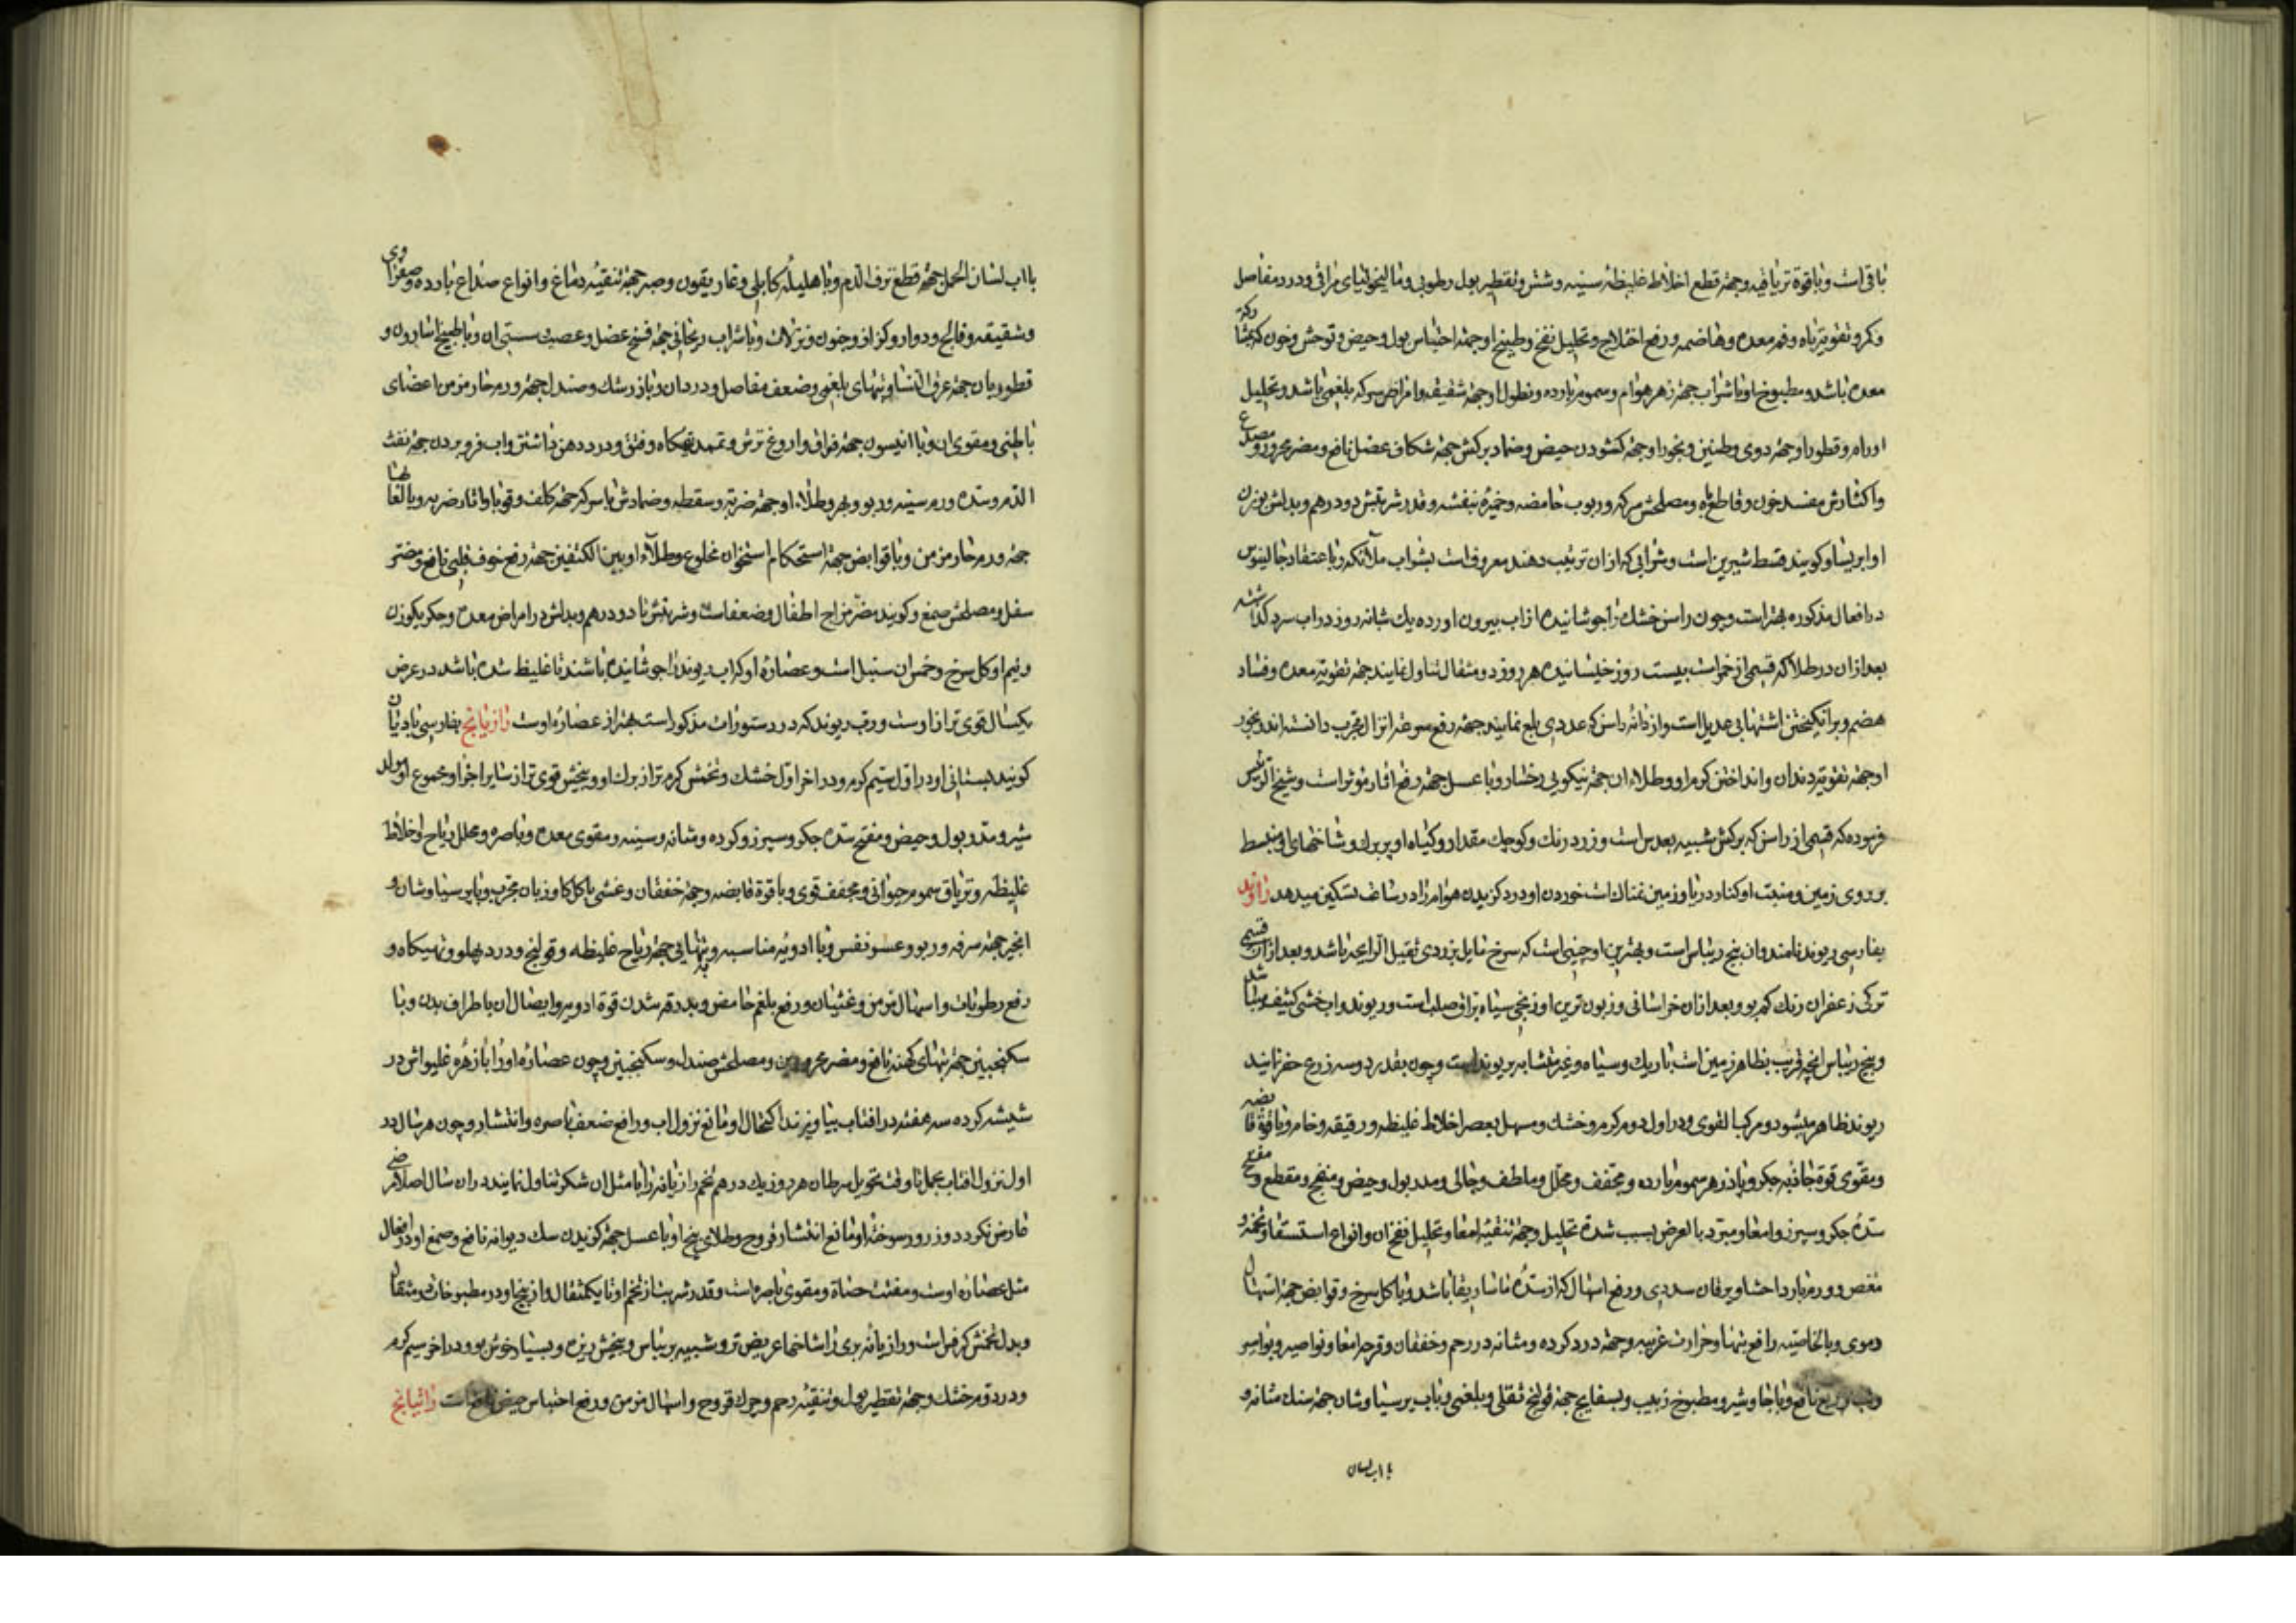 باقی است و با قوة تریاقیه و جهة قطع اخلاط غلیظه سینه و شش و تقطیر بول رطوبی و مالیخولیای مراقی و درد مفاصل
و کمر و تقویة باه و فم معده و هاضمه و رفع اختلاج و تحلیل نفخ و طبیخ او جهة احتباس بول و حیض و توحش و خون که بمشارکة
معده باشد و مطبوخ او با شراب جهة زهر هوام و سموم بارده و نطول او جهة شقیقه و امراض سر که بلغمی باشد و تحلیل
اورام و قطور او جهة دوی و طنین و بخور او جهة کشودن حیض و ضماد برکش جهة شکاف عضل نافع و مضر محرور و مصدع
و اکثارش مفسد خون و قاطع باه و مصلحش سرکه و ربوب حامضه و خمیرۀ بنفشه و قدر شربتش دو درهم و بدلش بوزن
او ایریسا و کویند قسط شیرین است و شرابی که از ان ترتیب دهند معروف است بشراب ملائکه و باعتقاد جالینوس
در افعال مذکوره بهتر است و چون راسن خشک را جوشانیده از اب بیرون اورده یک شبانه روز در اب سرد کذاشته
بعد از ان در طلا که قسمی از خمر است بیست روز خیسانیده هر روز دو مثقال تناول نمایند جهة تقویة معده و فساد
هضم و برانکیختن اشتها بی عدیل است و از دانۀ راسن که عددی بلع نمایند جهة رفع سوعة انزال مجرب دانسته اند و بخور
او جهة تقویة دندان و انداختن کرم او و طلاء ان جهة نیکویی رخسار و با عسل جهة رفع اثار موثر است و شیخ الرئیس
فرموده که قسمی از راسن که برکش شبیه بعدس است و زرد رنک و کوچک مقدار و کیاه او پر برک و شاخهای او منبسط
بر روی زمین و منبت او کنار دریا و زمین نمناک است خوردن او درد کزیدن هوام را در ساعت تسکین میدهد راوند
بفارسی ریوند نامند و ان بیخ ریباس است و بهترین او چینی است که سرخ مایل بزردی ثقیل الرایحه باشد و بعد از ان قسمی
ترکی زعفران رنک کم بو و بعد از ان خراسانی و زبون ترین او زنجی سیاه براق صلب است و ریوند دواب خشبی کثیف میباشد
و بیخ ریباس انچه قریب بظاهر زمین است باریک و سیاه و غیر متشابه بریوند است و چون بقدر دو سه زرع حفر نمایند
ریوند ظاهر میشود و مرکب القوی و در اول دوم کرم و خشک و مسهل بعصر اخلاط غلیظه و رقیقه و خام و با قوة قابضه
و مقوی قوة جاذبه جکر و پادزهر سموم بارده و مجفف و محلل و ملطف و جالی و مدر بول و حیض و منضج و مقطع و مفتح
سدۀ جکر و سپرز و امعا و مبرد بالعرض بسبب شدة تحلیل و جهة تنقیۀ امعا و تحلیل نفخ ان و انواع استسقا و تخمه و
مغص و ورم بارد احشا و یرقان سددی و رفع اسهال که از سدۀ ماساریقا باشد و با کل سرخ و قوابض جهة اسهال
دموی و بالخاصیه رافع تبها و حرارت غریبه و جهة درد کرده و مثانه و رحم و خفقان و قرحه امعا و نواصیر و بواسیر
و تب ربع نافع و با جاوشیر و مطبوخ زبیب و بسفایج جهة قولنج ثفلی و بلغمی و باب پرسیاوشان جهة سنک مثانه و
با اب لسان
با اب لسان الحمل جهة قطع نزف الدم و با هلیلۀ کابلی و غاریقون و صبر جهة تنقیۀ دماغ و انواع صداع بارده و صفراوی
و شقیقه و فالج و دوار و کزاز و جنون و نزلات و با شراب ریحانی جهة فسخ عضل و عصب و سستی ان و با طبیخ اسارون و
قطوریان جهة عرق النسا و تبهای بلغمی و ضعف مفاصل و درد ان و با زرشک و صندل جهة ورم حار مزمن اعضای
باطنی و مقوی ان و با انیسون جهة فواق و اروغ ترش و تمدد تهیکاه و فتق و در دهن داشتن و اب فرو بردن جهة نفث
الدم و سدۀ ورم سینه و ربو و بهر و طلاء او جهة ضربه و سقطه و ضمادش با سرکه جهة کلف و قوبا و اثار ضربه و با لعابها
جهة ورم حار مزمن و با قوابض جهة استحکام استخوان مخلوع و طلاء او بین الکتفین جهة رفع خوف قلبی نافع و مضر
سفل و مصلحش صمغ و کویند مضر مزاج اطفال و ضعفاست و شربتش تا دو درهم و بدلش در امراض معده و جکر یکوزن
و نیم او کل سرخ و خمس ان سنبل است و عصارۀ او که اب ریوند را جوشانیده باشند تا غلیظ شده باشد در عرض
یکسال قوی تر از اوست و رب ریوند که در دستورات مذکور است بهتر از عصارۀ اوست رازیانج بفارسی بادیان
کویند بستانی او در اول سیم کرم و در اخر اول خشک و تخمش کرم تر از برک او و بیخش قوی تر از سایر اجزا و مجموع او مولد
شیر و مدر بول و حیض و مفتح سدۀ جکر و سپرز و کرده و مثانه و سینه و مقوی معده و باصره و محلل ریاح و اخلاط
غلیظه و تریاق سموم حیوانی و مجفف قوی و با قوة قابضه و جهة خفقان و غشی با کل کاو زبان مجرب و با پرسیاوشان و
انجیر جهة سرفه و ربو و عسر نفس و با ادویۀ مناسبه و بتنهایی جهة ریاح غلیظه و قولنج و درد پهلو و تهیکاه و
رفع رطوبات و اسهال مزمن و غثیان و رفع بلغم حامض و بدرقه شدن قوة ادویه و ایصال ان باطراف بدن و با
سکنجبین جهة تبهای کهنه نافع و مضر محرورین و مصلحش صندل و سکنجبین و چون عصارۀ او را با زهرۀ غلیواش در
شیشه کرده سه هفته در افتاب بیاویزند اکتحال او مانع نزول اب و رافع ضعف باصره و انتشار و چون هر سال در
اول نزول افتاب بحمل تا وقت تحویل سرطان هر روز یک درهم تخم رازیانه را با مثل ان شکر تناول نمایند در ان سال اصلا مرضی
عارض نکردد و زرور سوختۀ او مانع انتشار قروح و طلای بیخ او با عسل جهة کزیدن سک دیوانه نافع و صمغ او در افعال
مثل عصارۀ اوست و مفتت حصاة و مقوی باصره است و قدر شربت از تخم او تا یکمثقال و از بیخ او در مطبوخات دو مثقال
و بدل تخمش کرفس است و رازیانۀ بری را شاخها عریض تر و شبیه بریباس و بیخش ریزه و بسیار خوش بو و در اخر سیم کرم
و در دوم خشک و جهة تقطیر بول و تنقیۀ رحم و چرک قروح و اسهال مزمن و رفع احتباس حیض نافع است راتیانج